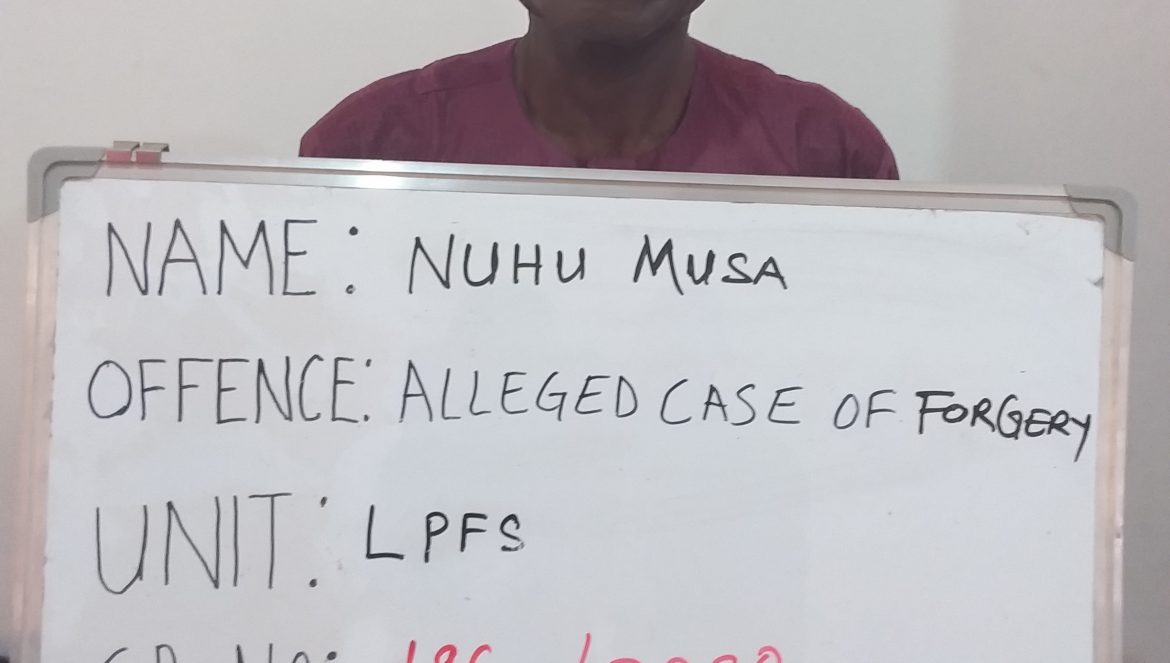 NAME: NUHU MUSA
OFFENCE: ALLEGED CASE OF FORGERY
UNIT: LPFS